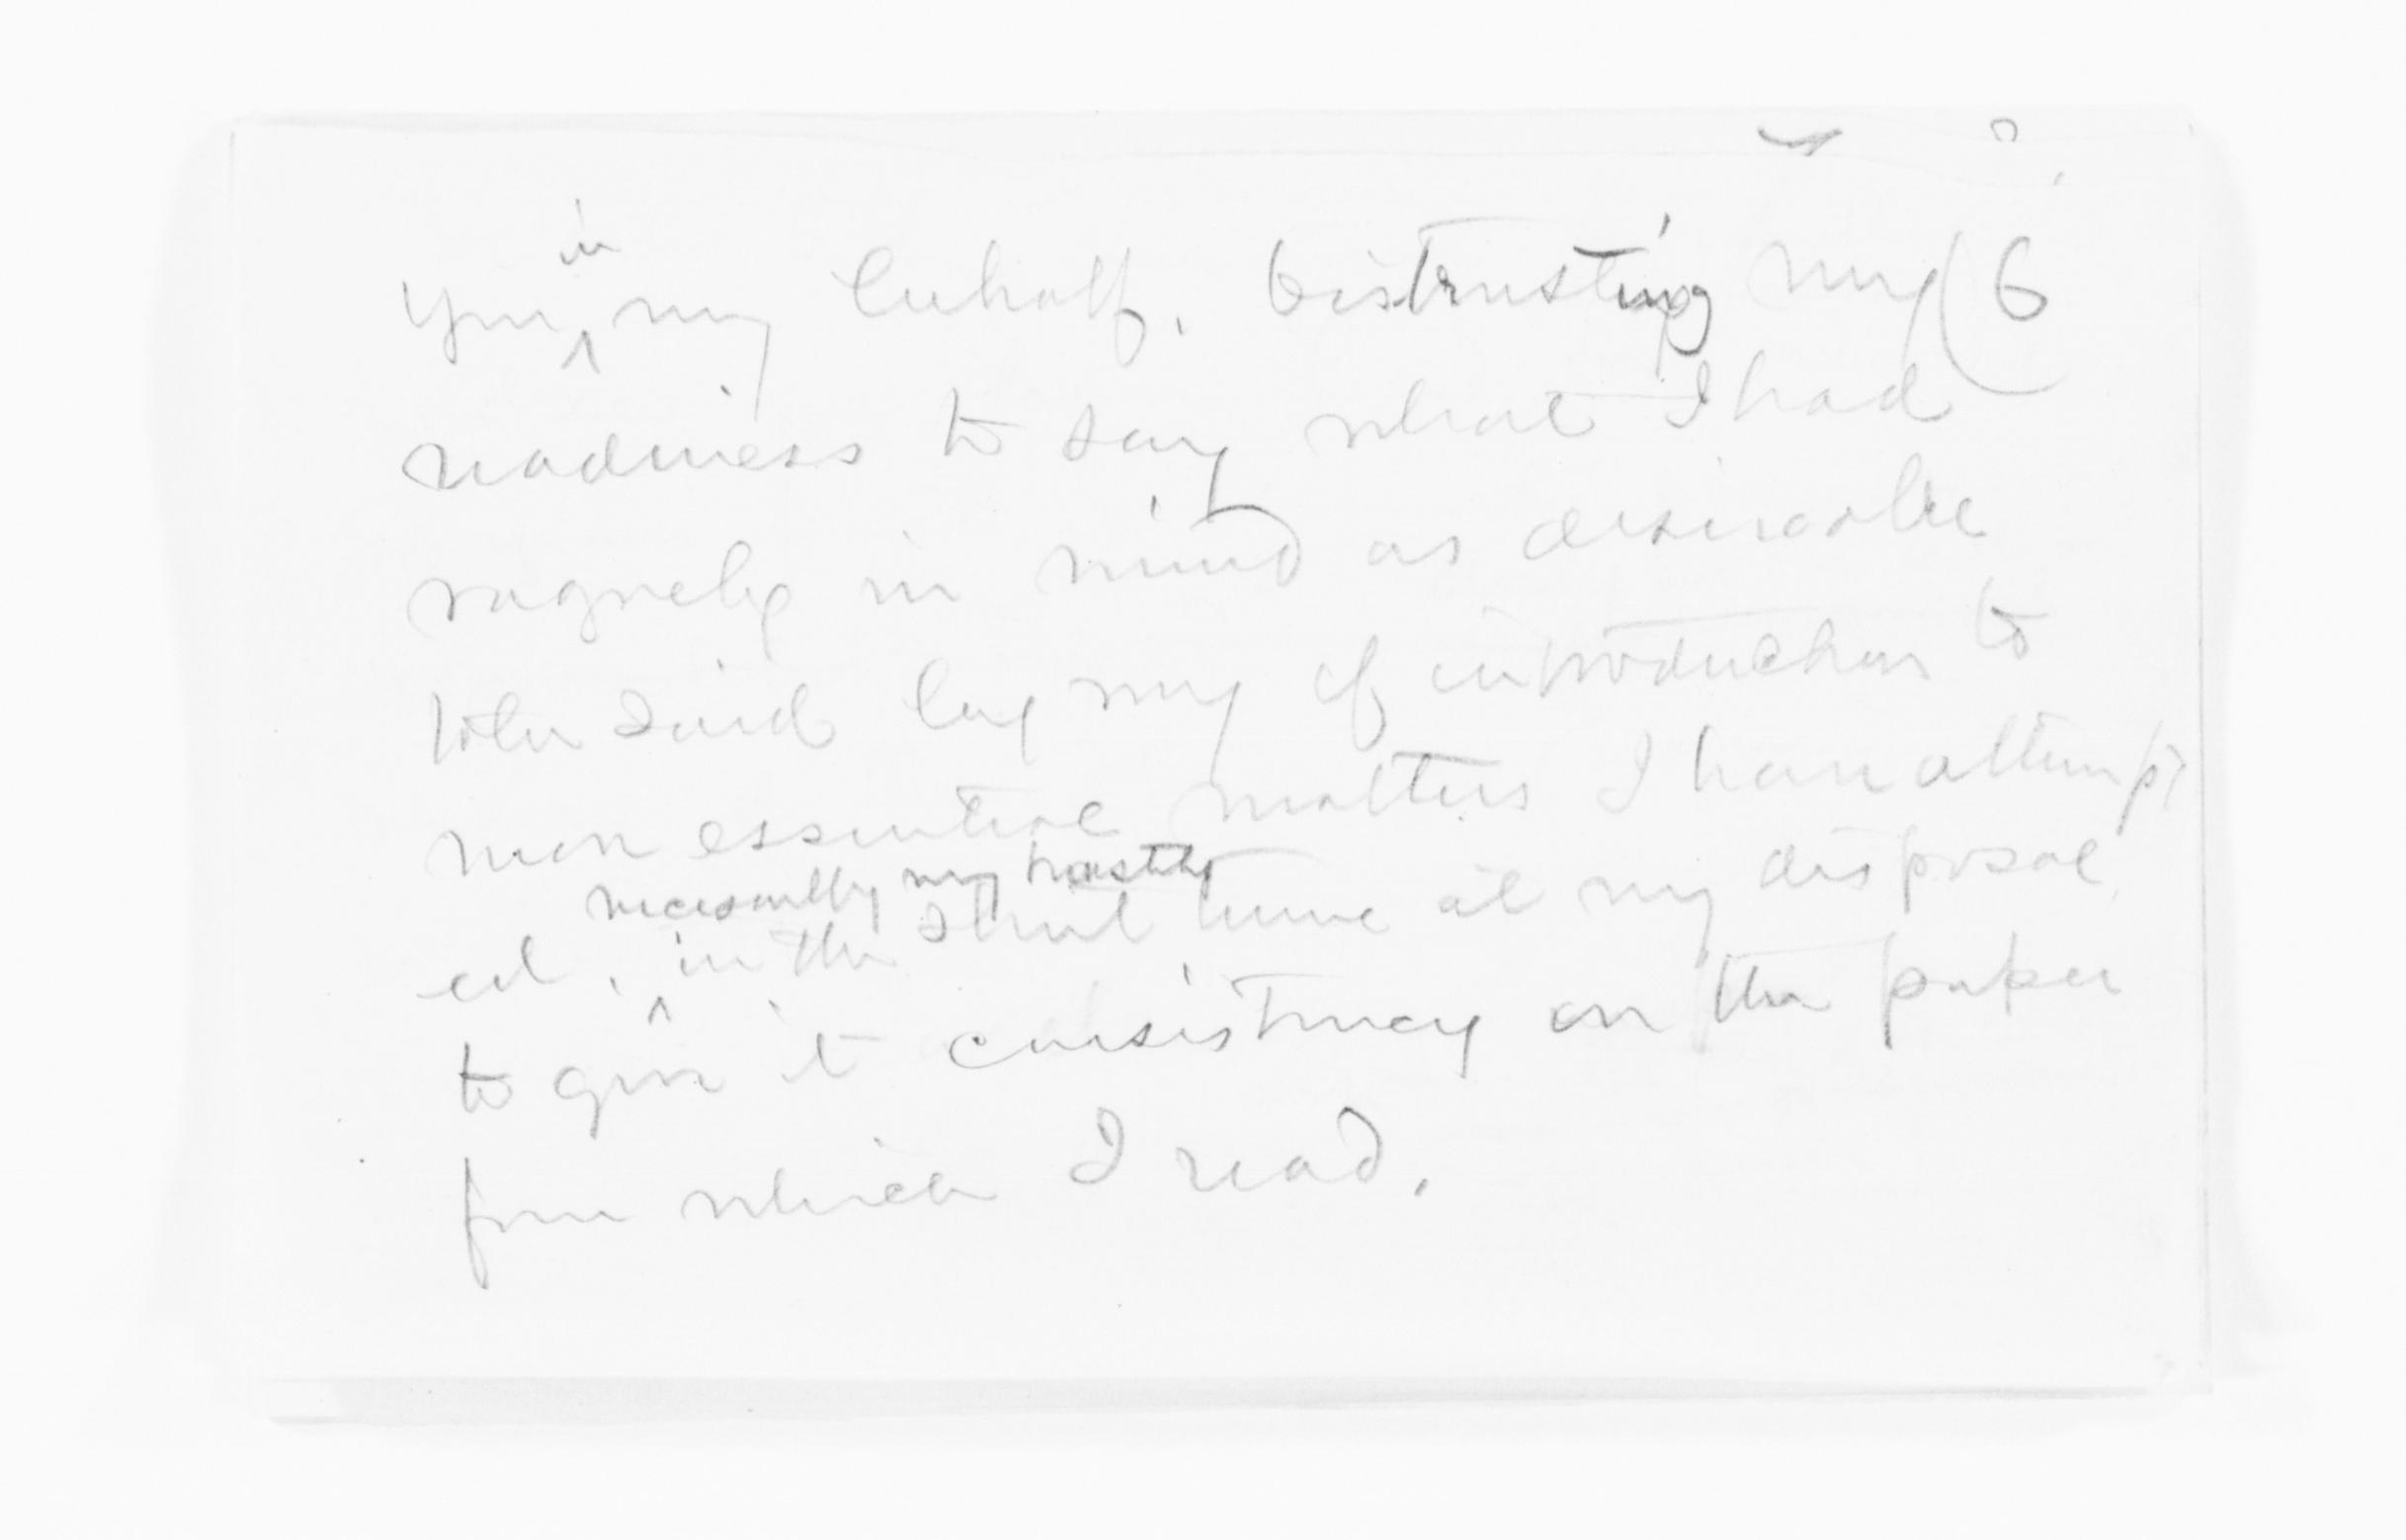 you ^in my behalf. Distrusting my (6
readiness to say what I had
vaguely in mind as desirable
to be said by way of introduction to
more essential matters I have attempt
ed, ^necessarily very hastily in the short time at my disposal,
to give it consistency on the paper
from which I read.